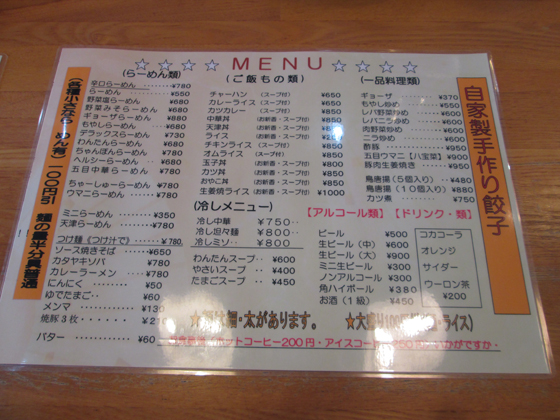 ☆☆☆☆ MENU ☆☆☆☆
(らーめん類)
辛口らーめん ¥780
らーめん ¥550
野菜塩らーめん ¥680
野菜みそらーめん ¥680
ギョーザらーめん ¥880
もやしらーめん ¥680
デラックスらーめん ¥780
わんたんらーめん ¥680
ちゃんぽんらーめん ¥780
ヘルシーらーめん ¥680
五目中華らーめん ¥780
ちゃーしゅーらーめん ¥780
ウマニらーめん ¥780
ミニらーめん ¥350
天津らーめん ¥780
つけ麺(つけ汁で) ¥780
ソース焼きそば ¥650
カタヤキソバ ¥780
カレーラーメン ¥780
にんにく ¥50
ゆでたまご ¥60
メンマ ¥130
焼豚3枚
バター ¥60
(ご飯もの類)
チャーハン (スープ付) ¥650
カレーライス (スープ付) ¥650
カツカレー (スープ付) ¥850
中華丼 (お新香・スープ付)
天津丼 (お新香・スープ付)
ライス (お新香・スープ付)
カツ丼 (お新香・スープ付)
チキンライス (スープ付)
オムライス (スープ付)
玉子丼 (お新香・スープ付)
カツニ (お新香・スープ付) ¥850
おやこ丼 (お新香・スープ付) ¥850
生姜焼ライス (お新香・スープ付) ¥1000
(冷しメニュー)
冷し中華 ¥750
冷し坦々麺 ¥800
冷しミソ ¥800
わんたんスープ ¥600
やさいスープ ¥400
たまごスープ ¥450
(一品料理類)
ギョーザ ¥370
もやし炒め ¥550
レバ野菜炒め
レバニラ炒め
肉野菜炒め
ニラ炒め
酢豚
五目ウマニ【八宝菜】 ¥900
豚肉生姜焼き
鳥唐揚(5個入り) ¥480
鳥唐揚(10個入り) ¥880
カツ煮 ¥750
【アルコール類】【ドリンク・類】
ビール ¥500
生ビール(中) ¥600
生ビール(大) ¥900
ミニ生ビール ¥300
ノンアルコール ¥300
角ハイボール ¥380
お酒(1級) ¥450
コカコーラ
オレンジ
サイダー
ウーロン茶
¥200
細・太があります。
★大盛り100円
ホットコーヒー200円・アイスコーヒー250円
いかがですか
自家製手作り餃子